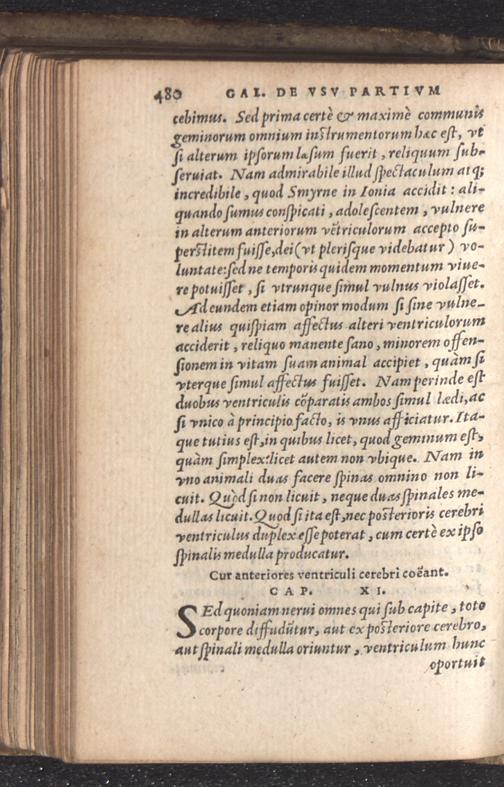 480 GAL. DE VSV PARTIVM
cebimus. Sed prima certè & maximè communis
geminorum omnium instrumentorum hæc est, vt
si alterum ipsorum læsum fuerit, reliquum sub-
seruiat. Nam admirabile illud spectaculum atq;
incredibile, quod Smyrne in Ionia accidit: ali-
quando sumus conspicati, adolescentem, vulnere
in alterum anteriorum vẽtriculorum accepto su-
perstitem fuisse, dei (vt plerisque videbatur) vo-
luntate: sed ne temporis quidem momentum viue-
re potuisset, si vtrunque simul vulnus violasset.
Ad eundem etiam opinor modum si sine vulne-
re alius quispiam affectus alteri ventriculorum
acciderit, reliquo manente sano, minorem offen-
sionem in vitam suam animal accipiet, quàm si
vterque simul affectus fuisset. Nam perinde est
duobus ventriculis cõparatis ambos simul lædi, ac
si vnico à principio facto, is vnus afficiatur. Ita-
que tutius est, in quibus licet, quod geminum est,
quàm simplex: licet autem non vbique. Nam in
vno animali duas facere spinas omnino non li-
cuit. Quòd si non licuit, neque duas spinales me-
dullas licuit. Quod si ita est, nec posterioris cerebri
ventriculus duplex esse poterat, cum certè ex ipso
spinalis medulla producatur.
Cur anteriores ventriculi cerebri coëant.
CAP. XI.
SEd quoniam nerui omnes qui sub capite, toto
corpore diffudũtur, aut ex posteriore cerebro,
aut spinali medulla oriuntur, ventriculum hunc
oportuit